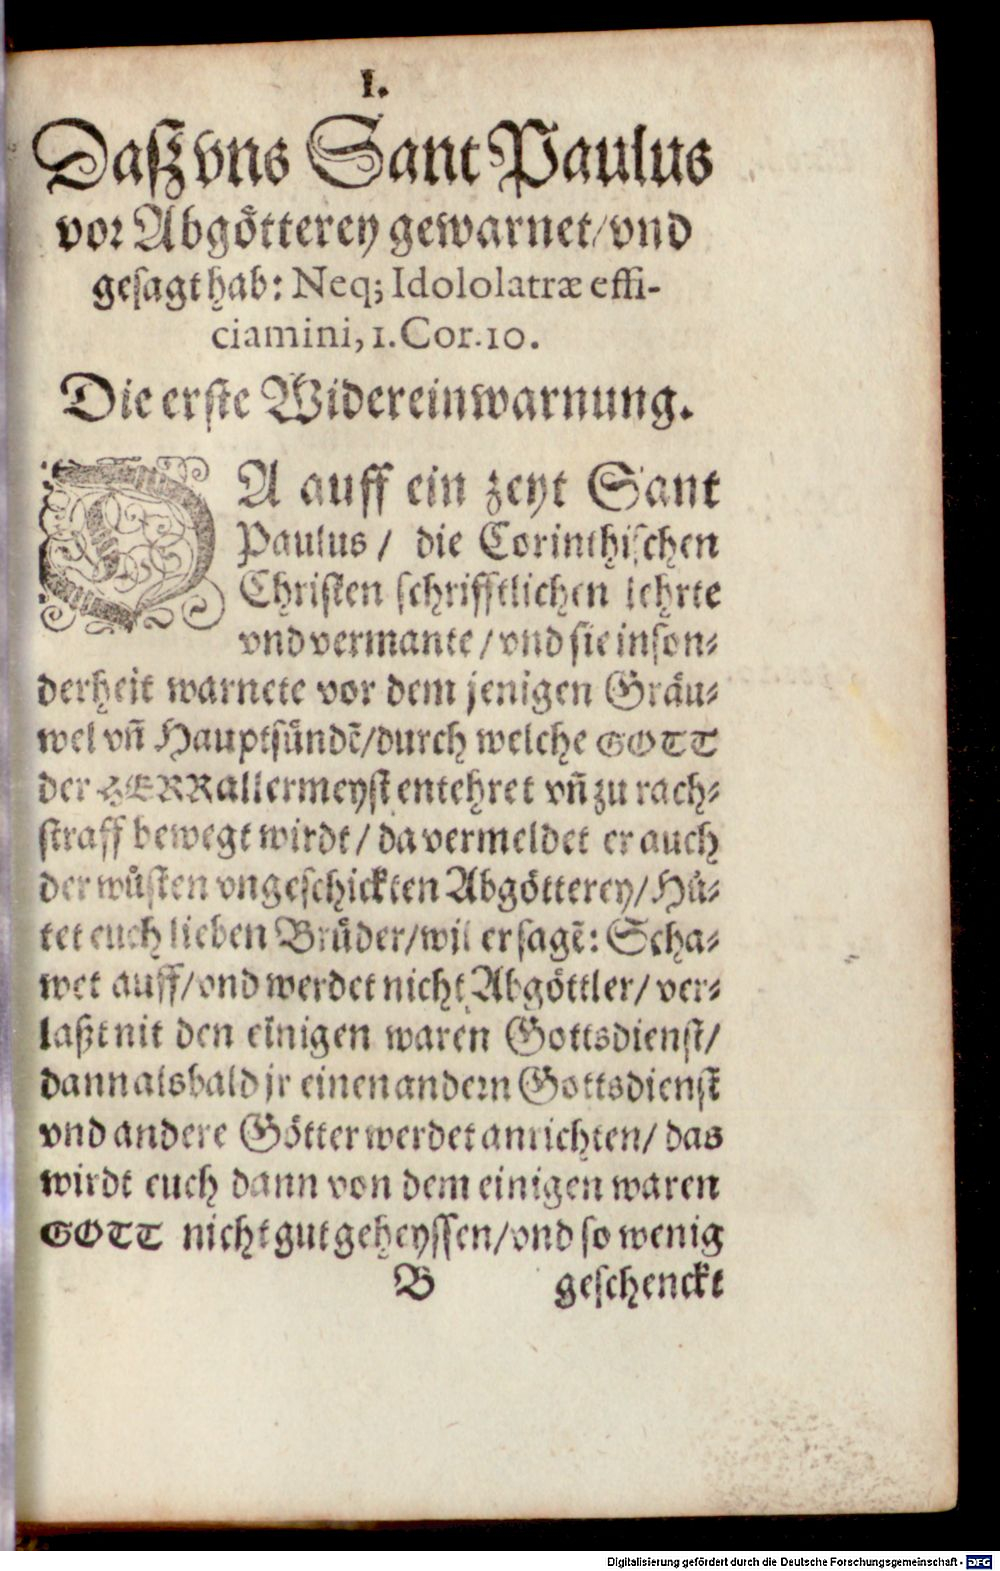 I.
Daſz vns Sant Paulus
vor Abgoͤtterey gewarnet/vnd
geſagt hab: Neq; Idololatræ effi-
ciamini, 1. Cor. 10.
Die erſte Widereinwarnung.
DA auff ein zeyt Sant
Paulus / die Corinthiſchen
Chriſten ſchrifftlichen lehrte
vnd vermante / vnd ſie inſon-
derheit warnete vor dem jenigen Graͤu-
wel vñ Hauptſuͤndẽ/durch welche GOTT
der HERR allermeyſt entehret vñ zu rach-
ſtraff bewegt wirdt / da vermeldet er auch
der wuͤſten vngeſchickten Abgoͤtterey/Huͤ-
tet euch lieben Bruͤder/wil er ſagẽ: Scha-
wet auff/vnd werdet nicht Abgoͤttler/ ver-
laßt nit den einigen waren Gottsdienſt/
dann alsbald jr einen andern Gottsdienſt
vnd andere Goͤtter werdet anrichten/ das
wirdt euch dann von dem einigen waren
GOTT nicht gut geheyſſen/vnd ſo wenig
B geſchenckt
Digitalisierung gefördert durch die Deutsche Forschungsgemeinschaft - DFG